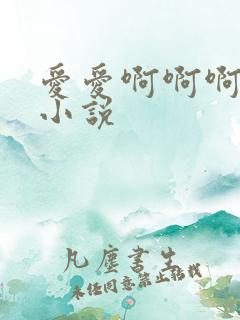 愛愛啊啊啊
小説
凡塵書生
未经同意禁止转载